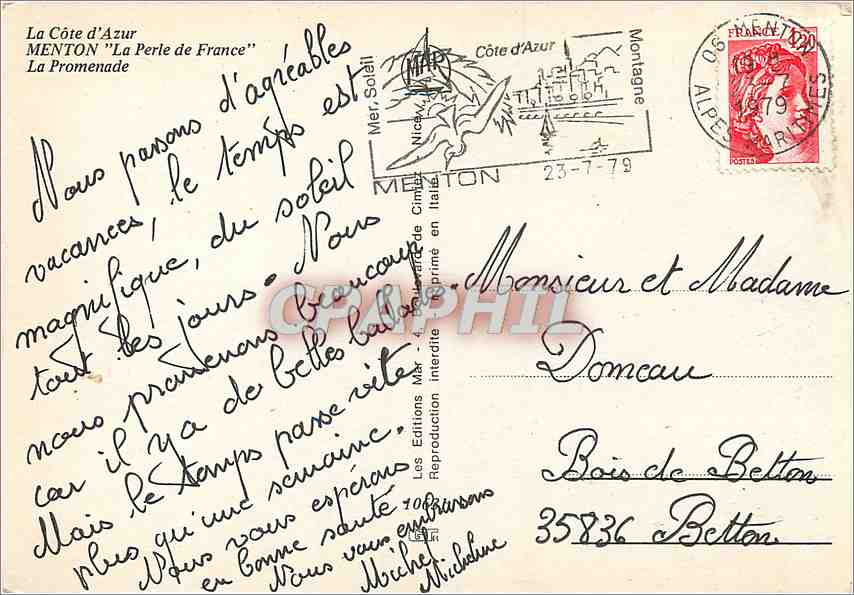 La Côte d'Azur
MENTON "La Perle de France"
La Promenade
Nous passons d'agréables
vacances, le temps est
magnifique, du soleil
tout les jours. Nous
nous promenons beaucoup
car il y a de belles ballades.
Mais le temps passe vite
plus qu'une semaine.
Nous vous espérons
en bonne santé.
Nous vous embrassons
Michel
Micheline
Mer, Soleil
MAP
Côte d'Azur
Montagne
MENTON
23-7-79
06 MENTON
1979
ALPES MARITIMES
FRANCE
1,20
POSTES
Les Editions Mar - 4, Boulevard de Cimiez, Nice
Reproduction interdite Imprimé en Italie
CPAPHIL
Monsieur et Madame
Domeau
Bois de Betton
35836 Betton